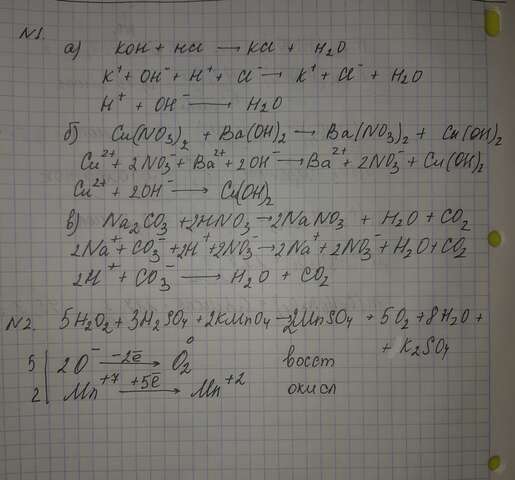 N1.
а) KOH + HCl → KCl + H₂O
K⁺ + OH⁻ + H⁺ + Cl⁻ → K⁺ + Cl⁻ + H₂O
H⁺ + OH⁻ → H₂O
б) Cu(NO₃)₂ + Ba(OH)₂ → Ba(NO₃)₂ + Cu(OH)₂
Cu²⁺ + 2NO₃⁻ + Ba²⁺ + 2OH⁻ → Ba²⁺ + 2NO₃⁻ + Cu(OH)₂
Cu²⁺ + 2OH⁻ → Cu(OH)₂
в) Na₂CO₃ + 2HNO₃ → 2NaNO₃ + H₂O + CO₂
2Na⁺ + CO₃⁻ + 2H⁺ + 2NO₃⁻ → 2Na⁺ + 2NO₃⁻ + H₂O + CO₂
2H⁺ + CO₃⁻ → H₂O + CO₂
N2. 5H₂O₂ + 3H₂SO₄ + 2KMnO₄ → 2MnSO₄ + 5O₂ + 8H₂O +
+ K₂SO₄
5 | 2O⁻ –2e̅→ O₂⁰ восст
2 | Mn⁺⁷ +5e̅→ Mn⁺² окисл